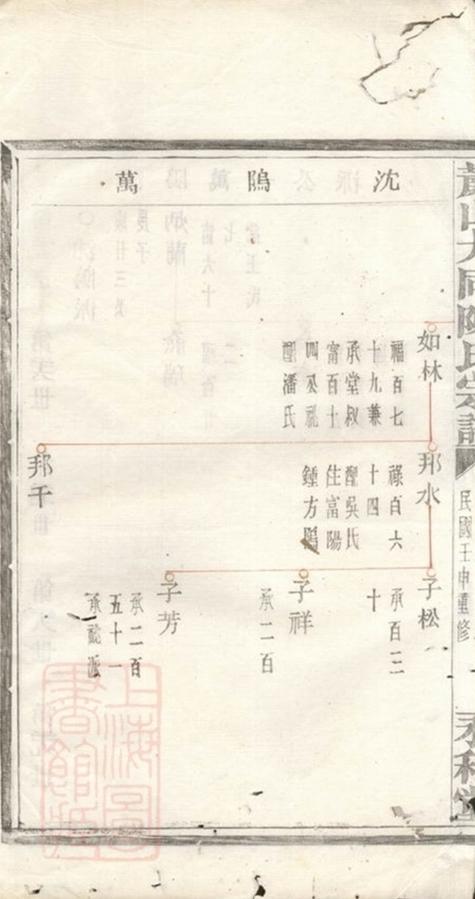 沈 鴄 萬
如林
福百七
十九兼
承堂叔
富百十
四丞祀
配潘氏
邦水
祿百六
十四
配吳氏
住富陽
鍾方
邦千
子松
承百三
十
子祥
承二百
子芳
承二百
五十一
承認派
民國壬申重修
永和堂
上海圖書館藏